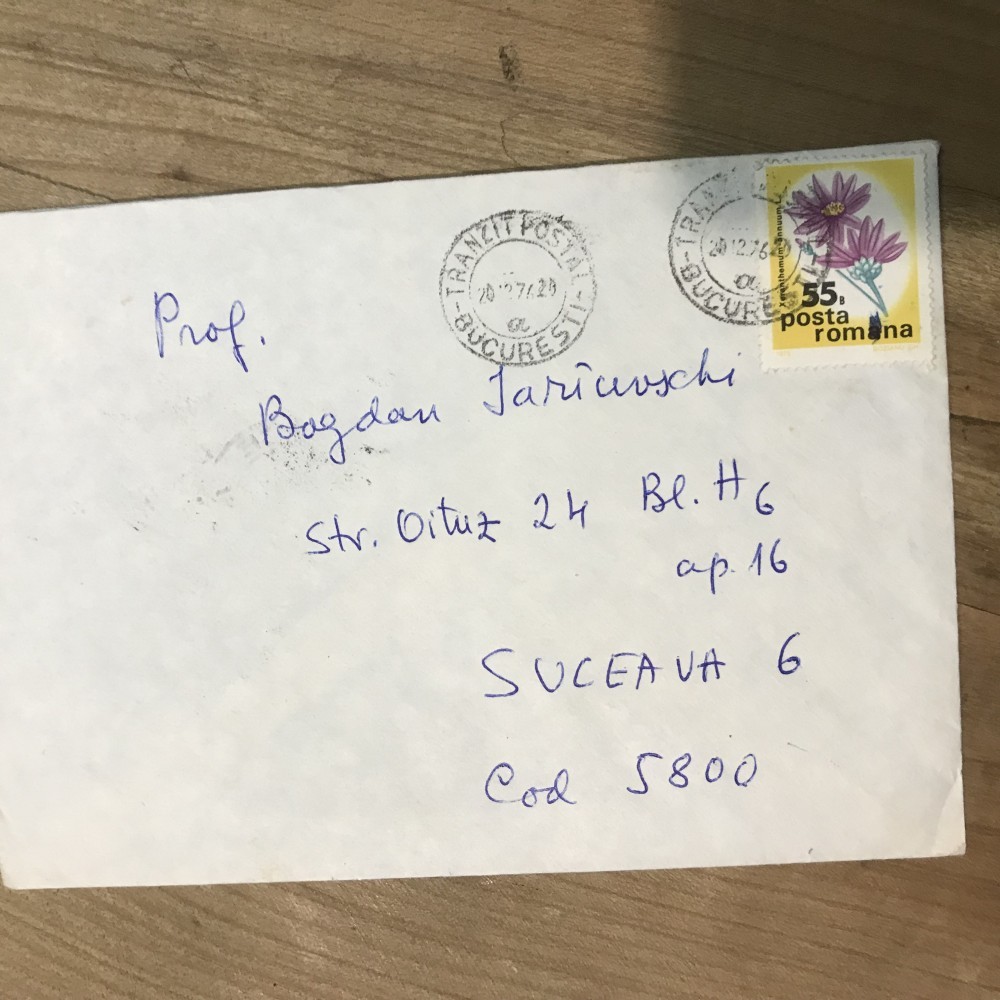 TRANZIT POSTAL
20.12.76.20
a
-BUCUREȘTI-
TRANZIT
20.12.76-20
a
-BUCUREȘTI-
Xeranthemum annuum L.
55B
posta
romana
Prof.
Bogdan
Str. Oituz 24 Bl. H6
ap. 16
SUCEAVA 6
Cod 5800